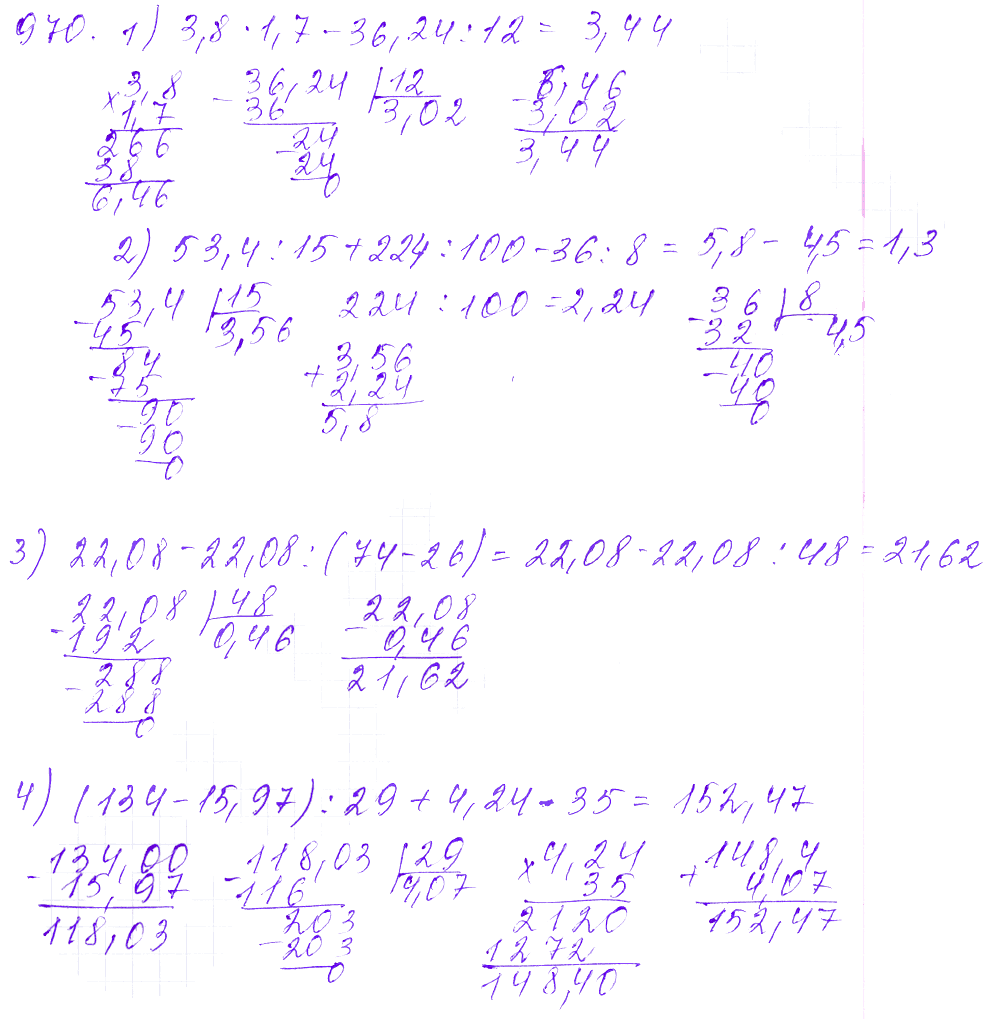 970. 1) 3,8 · 1,7 - 36,24 : 12 = 3,44
× 3,8 - 36,24 | 12 6,46
1,7 36 3,02 - 3,02
266 - 24 3,44
38 24
6,46 0
2) 53,4 : 15 + 224 : 100 - 36 : 8 = 5,8 - 4,5 = 1,3
- 53,4 | 15 224 : 100 = 2,24 - 36 | 8
45 3,56 32 4,5
- 84 + 3,56 - 40
75 2,24 40
- 90 5,8 0
90
0
3) 22,08 - 22,08 : (74 - 26) = 22,08 - 22,08 : 48 = 21,62
- 22,08 | 48 - 22,08
192 0,46 0,46
- 288 21,62
288
0
4) (134 - 15,97) : 29 + 4,24 · 35 = 152,47
- 134,00 - 118,03 | 29 × 4,24 + 148,4
15,97 116 4,07 35 4,07
118,03 203 2120 152,47
- 203 1272
0 148,40